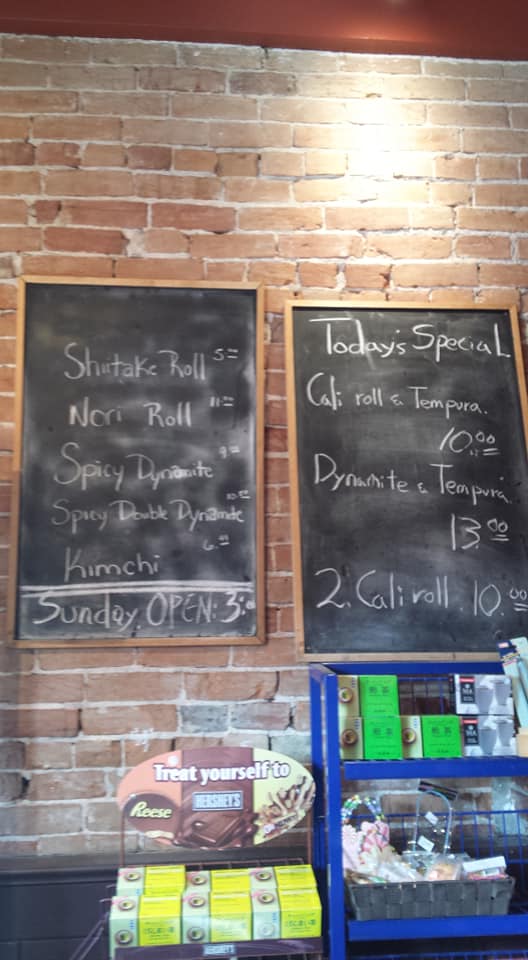 Shiitake Roll 5.00
Nori Roll 11.00
Spicy Dynamite 9.00
Spicy Double Dynamite 10.50
Kimchi
Sunday. OPEN: 3:
Today's Special
Cali roll & Tempura.
10.00
Dynamite & Tempura.
13.00
2. Cali roll. 10.00
Treat yourself to
Reese
HERSHEY'S
HERSHEY'S